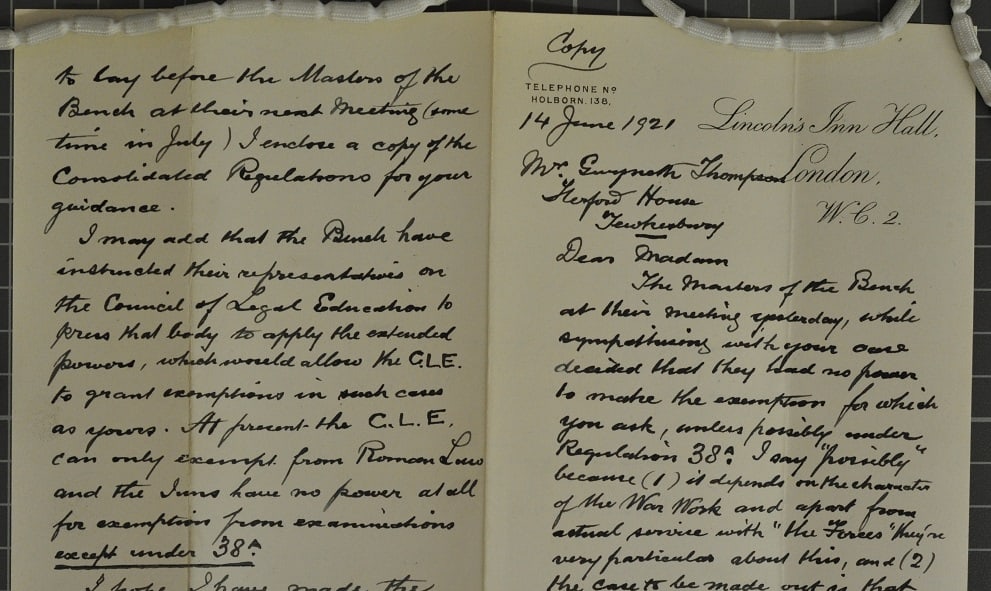 Copy
TELEPHONE Nº
HOLBORN. 138.
14 June 1921 Lincoln's Inn Hall,
Gwyneth Thompson London,
House W.C. 2.
Tewkesbury
Dear Madam
The Masters of the Bench
at their meeting yesterday, while
sympathising with your case
decided that they had no power
to make the exemption for which
you ask, unless possibly under
Regulation 38ᴬ. I say "possibly"
because (1) it depends on the character
of the War Work and apart from
actual service with "the Forces" they're
very particular about this, and (2)
the case to be made out is that
to lay before the Masters of the
Bench at their next Meeting (some
time in July) I enclose a copy of the
Consolidated Regulations for your
guidance.
I may add that the Bench have
instructed their representatives on
the Council of Legal Education to
press that body to apply the extended
powers, which would allow the C.L.E.
to grant exemptions in such cases
as yours. At present the C.L.E.
can only exempt from Roman Law
and the Inns have no power at all
for exemption from examinations
except under 38ᴬ
I hope I have made the